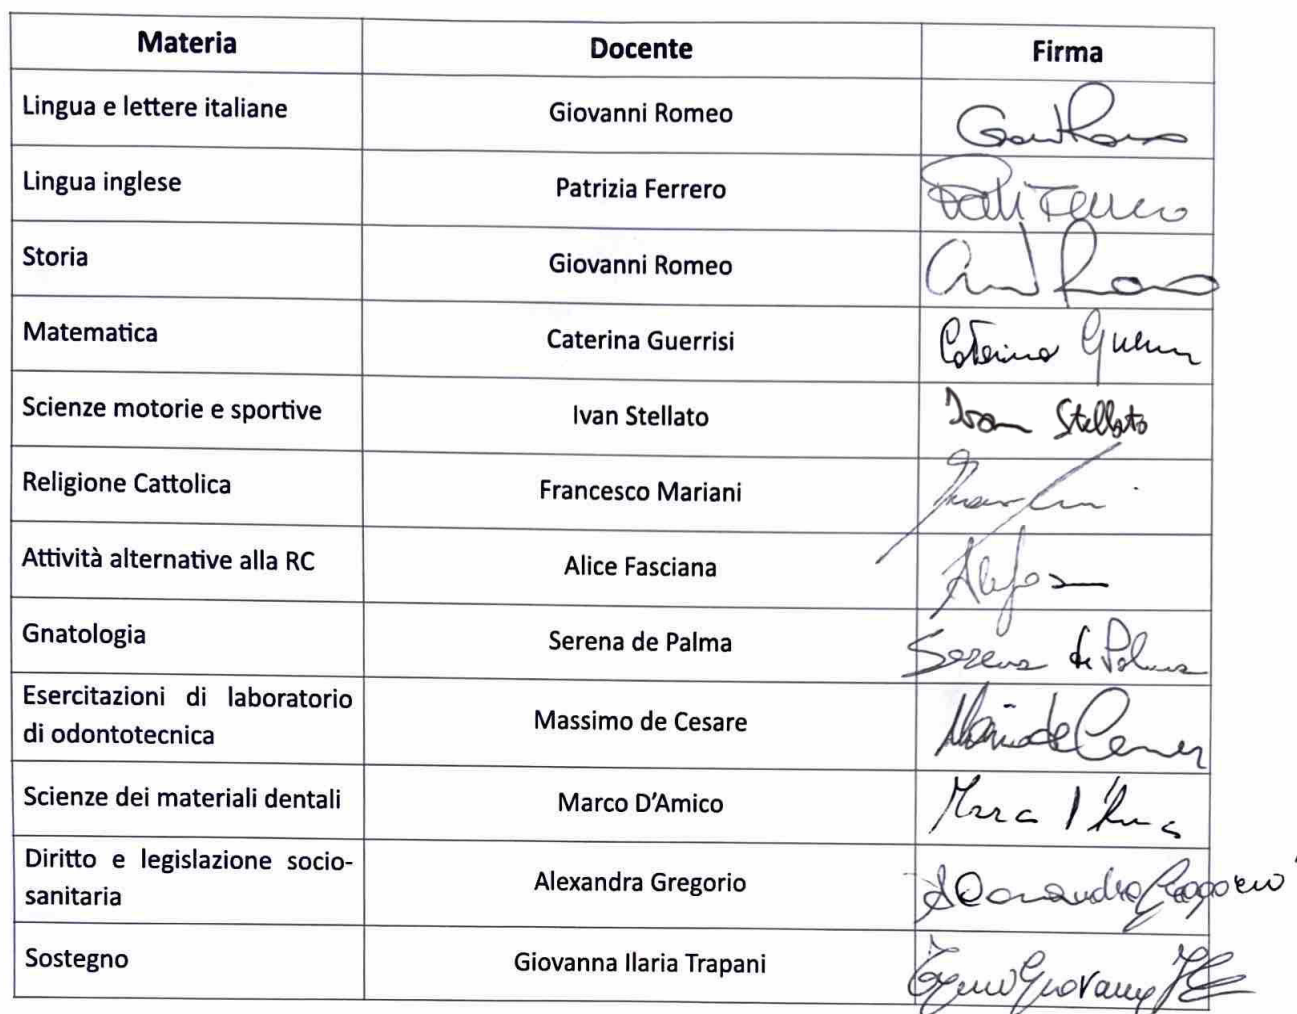 Materia Docente Firma
Lingua e lettere italiane Giovanni Romeo
Lingua inglese Patrizia Ferrero
Storia Giovanni Romeo
Matematica Caterina Guerrisi Caterina
Scienze motorie e sportive Ivan Stellato Ivan Stellato
Religione Cattolica Francesco Mariani
Attività alternative alla RC Alice Fasciana
Gnatologia Serena de Palma Serena de Palma
Esercitazioni di laboratorio
di odontotecnica Massimo de Cesare
Scienze dei materiali dentali Marco D'Amico
Diritto e legislazione socio-
sanitaria Alexandra Gregorio
Sostegno Giovanna Ilaria Trapani